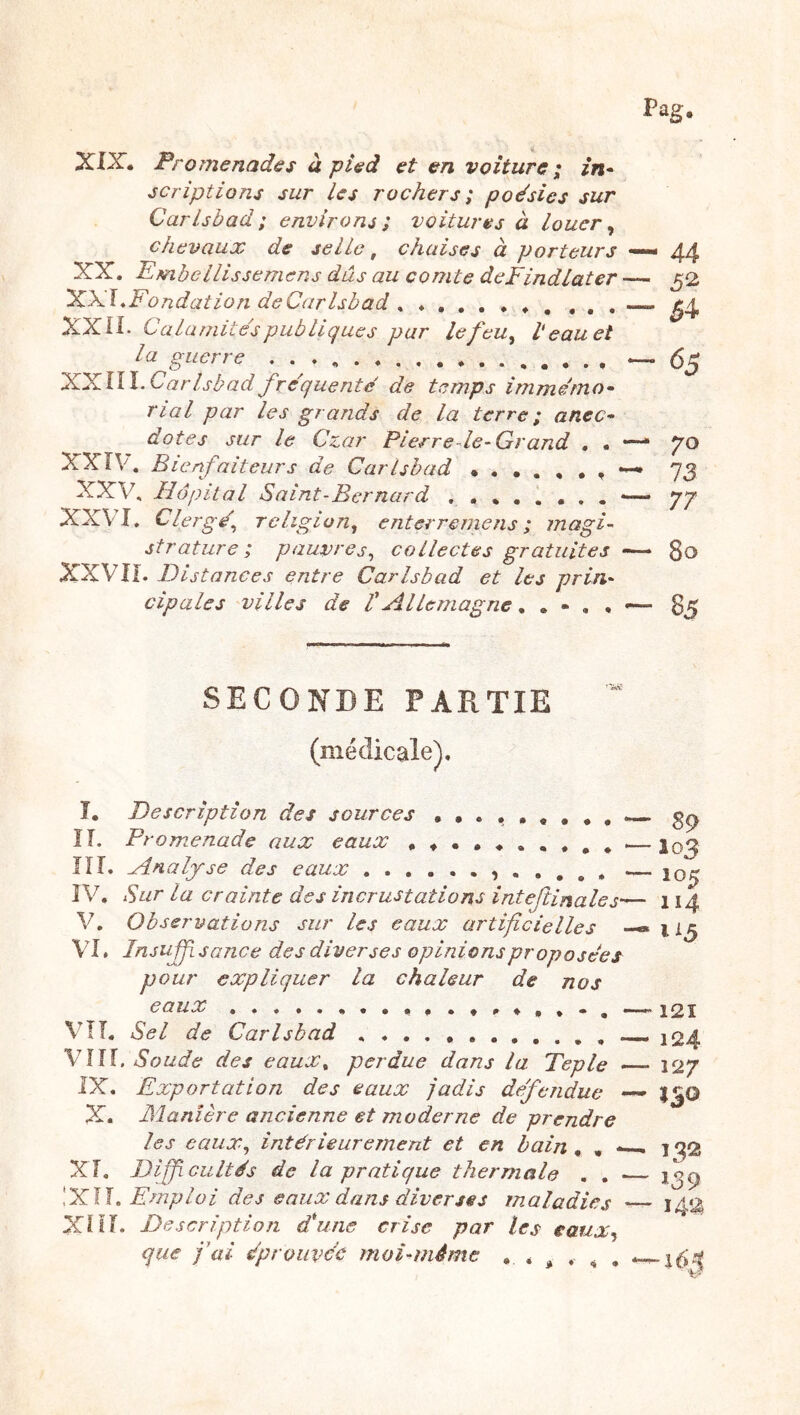 Pag.
XIX. Promenades à pied et en voiture; in-
scriptions sur les rochers; poésies sur
Carlsbad; environs; voitures à louer,
chevaux de selle, chaises à porteurs — 44
XX. Embellissemens dûs au comte deFindlater — 52
XXI. Fondation de Carlsbad . . . . . . . . . . . — 54
XXII. Calamités publiques par le feu, l'eau et
la guerre . . . . . . . . . . . . . . . . — 65
XXIII. Carlsbad fréquenté de temps immémo-
rial par les grands de la terre; anec-
dotes sur le Czar Pierre-le-Grand . . — 70
XXIV. Bienfaiteurs de Carlsbad . . . . . . . — 73
XXV. Hôpital Saint-Bernard . . . . . . . . — 77
XXVI. Clergé, religion, enterremens; magi-
strature; pauvres, collectes gratuites — 80
XXVII. Distances entre Carlsbad et les prin-
cipales villes de l'Allemagne . . . . . — 85
SECONDE PARTIE
(médicale).
I. Description des sources . . . . . . . . . — 89
II. Promenade aux eaux . . . . . . . . . . — 103
III. Analyse des eaux . . . . . . , . . . . . — 105
IV. Sur la crainte des incrustations inteſtinales — 114
V. Observations sur les eaux artificielles — 115
VI. Insuffisance des diverses opinions proposées
pour expliquer la chaleur de nos
eaux . . . . . . . . . . . . . . . . . . — 121
VII. Sel de Carlsbad . . . . . . . . . . . . — 124
VIII. Soude des eaux, perdue dans la Teple — 127
IX. Exportation des eaux jadis défendue — 130
X. Manière ancienne et moderne de prendre
les eaux, intérieurement et en bain . . — 132
XI. Difficultés de la pratique thermale . . — 139
XII. Emploi des eaux dans diverses maladies — 142
XIII. Description d'une crise par les eaux,
que j'ai éprouvée moi-même . . . . . . — 163